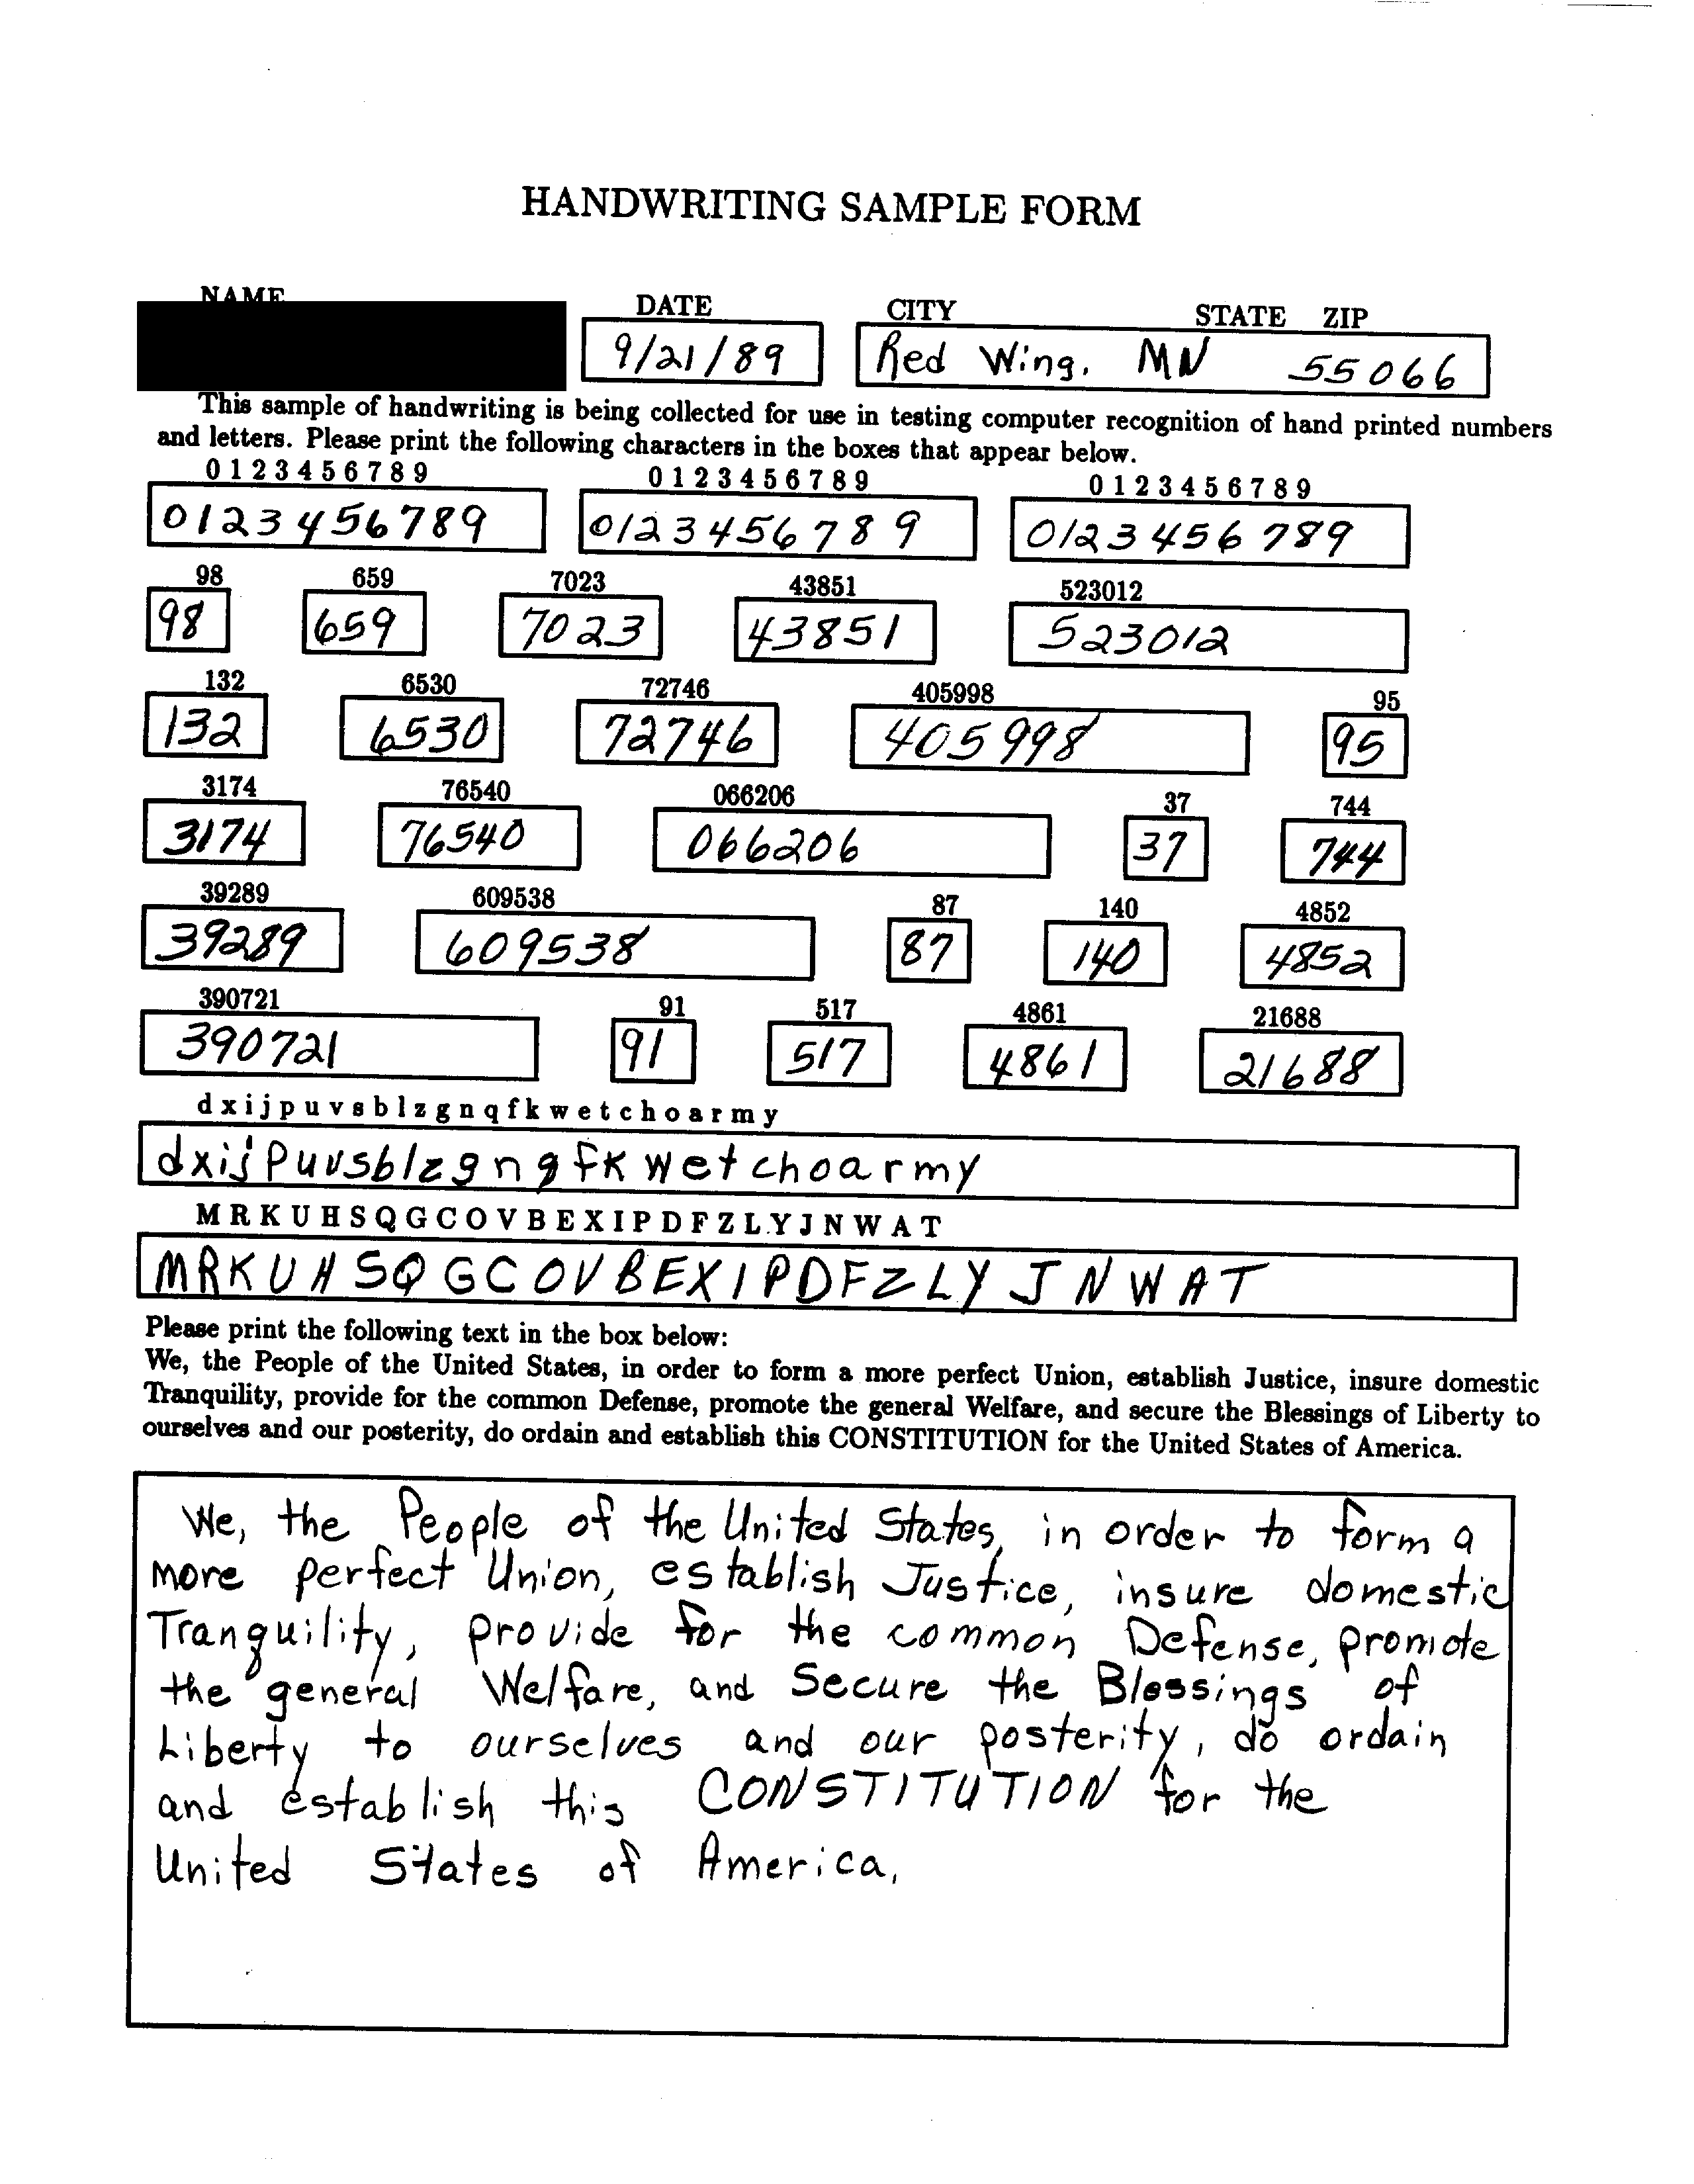 HANDWRITING SAMPLE FORM
NAME DATE CITY STATE ZIP
9/21/89 Red Wing, MN 55066
This sample of handwriting is being collected for use in testing computer recognition of hand printed numbers
and letters. Please print the following characters in the boxes that appear below.
0 1 2 3 4 5 6 7 8 9 0 1 2 3 4 5 6 7 8 9 0 1 2 3 4 5 6 7 8 9
0123456789 0123456789 0123456789
98 659 7023 43851 523012
98 659 7023 43851 523012
132 6530 72746 405998 95
132 6530 72746 405998 95
3174 76540 066206 37 744
3174 76540 066206 37 744
39289 609538 87 140 4852
39289 609538 87 140 4852
390721 91 517 4861 21688
390721 91 517 4861 21688
d x i j p u v s b l z g n q f k w e t c h o a r m y
dxijpuvsblzgnqfkwetchoarmy
M R K U H S Q G C O V B E X I P D F Z L Y J N W A T
MRKUHSQGCOVBEXIPDFZLYJNWAT
Please print the following text in the box below:
We, the People of the United States, in order to form a more perfect Union, establish Justice, insure domestic
Tranquility, provide for the common Defense, promote the general Welfare, and secure the Blessings of Liberty to
ourselves and our posterity, do ordain and establish this CONSTITUTION for the United States of America.
We, the People of the United States, in order to form a
more perfect Union, establish Justice, insure domestic
Tranquility, provide for the common Defense, promote
the general Welfare, and Secure the Blessings of
Liberty to ourselves and our posterity, do ordain
and establish this CONSTITUTION for the
United States of America,